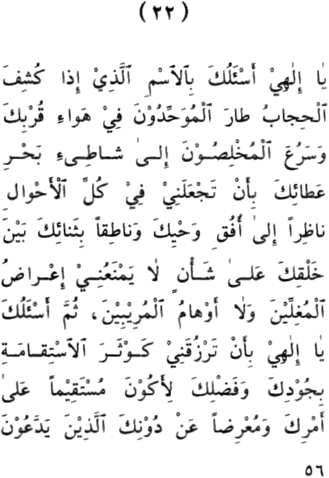 ( ٢٢ )
يٰا إِلٰهِيْ أَسْئَلُكَ بِالْاسْمِ الَّذِيْ إِذا كُشِفَ
الْحِجابُ طارَ الْمُوَحِّدُوْنَ فِيْ هَواءِ قُرْبِكَ
وَسَرُعَ الْمُخْلِصُوْنَ إِلىٰ شاطِىءِ بَحْرِ
عَطائِكَ بِأَنْ تَجْعَلَنِيْ فِيْ كُلِّ الْأَحْوالِ
ناظِراً إِلىٰ أُفُقِ وَحْيِكَ وَناطِقاً بِثَنائِكَ بَيْنَ
خَلْقِكَ عَلىٰ شَأْنٍ لٰا يَمْنَعُنِيْ إِعْراضُ
الْمُغِلِّيْنَ وَلٰا أَوْهامُ الْمُرِيْبِيْنَ، ثُمَّ أَسْئَلُكَ
يٰا إِلٰهِيْ بِأَنْ تَرْزُقَنِيْ كَوْثَرَ الْاسْتِقامَةِ
بِجُوْدِكَ وَفَضْلِكَ لِأَكُوْنَ مُسْتَقِيْماً عَلىٰ
أَمْرِكَ وَمُعْرِضاً عَنْ دُوْنِكَ الَّذِيْنَ يَدَّعُوْنَ
٥٦